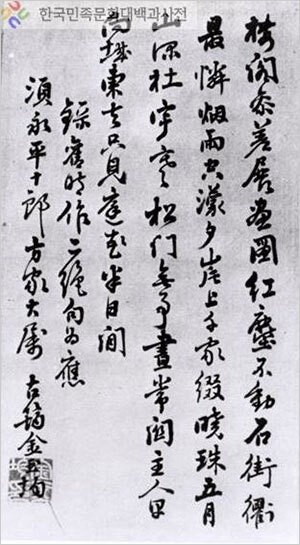 한국민족문화대백과사전
樓閣參差展畫圖紅塵不動石街衢
最憐烟雨空濛夕崖上千家綴曉珠五月
山深杜宇寒松門無事晝常關主人早
向城東去只見庭花半日閒
錄舊時作二絕句為應
須永平十郎方家大屬 古筠金玉均